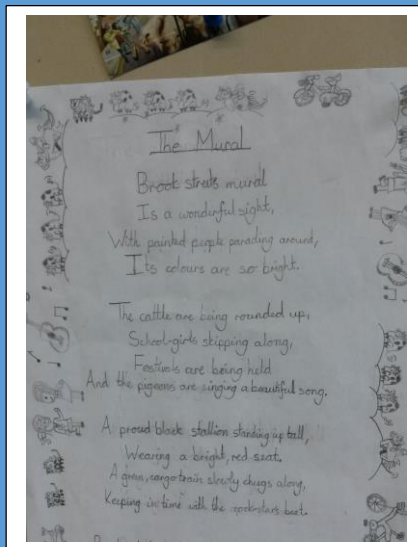 The Mural
Brook streets mural
Is a wonderful sight,
With painted people parading around,
Its colours are so bright.
The cattle are being rounded up,
School-girls skipping along,
Festivals are being held
And the pigeons are singing a beautiful song.
A proud black stallion standing up tall,
Wearing a bright, red seat.
A green, cargo train slowly chugs along,
Keeping in time with the rock-stars beat.